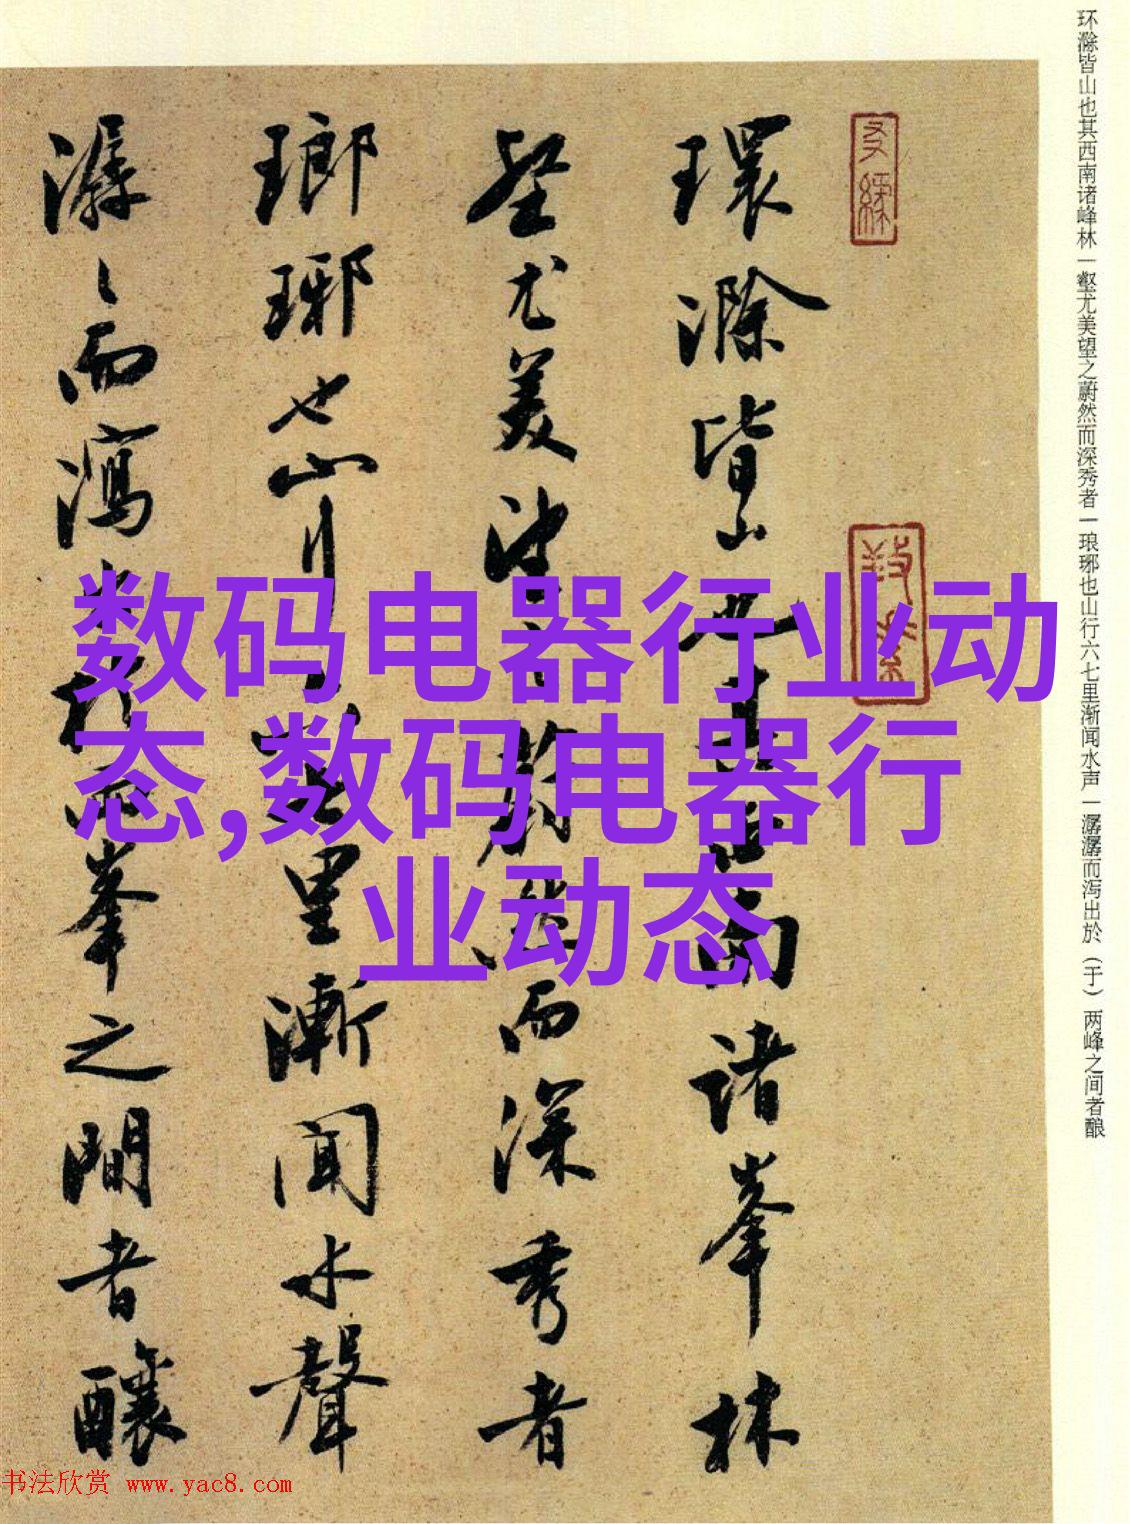 环滁皆山也其西南诸峰林一壑尤美望之蔚然而深秀者一琅琊也山行六七里渐闻水声一潺潺而泻出於（于）两峰之间者酿
環滁皆山也其西南诸峯林
壑尤美望之蔚然而深秀者
瑯琊也山行六七里漸闻水聲
潺〻而瀉出於两峯之間者釀
数码电器行业动
态,数码电器行
业动态
书法欣赏 www.yac8.com